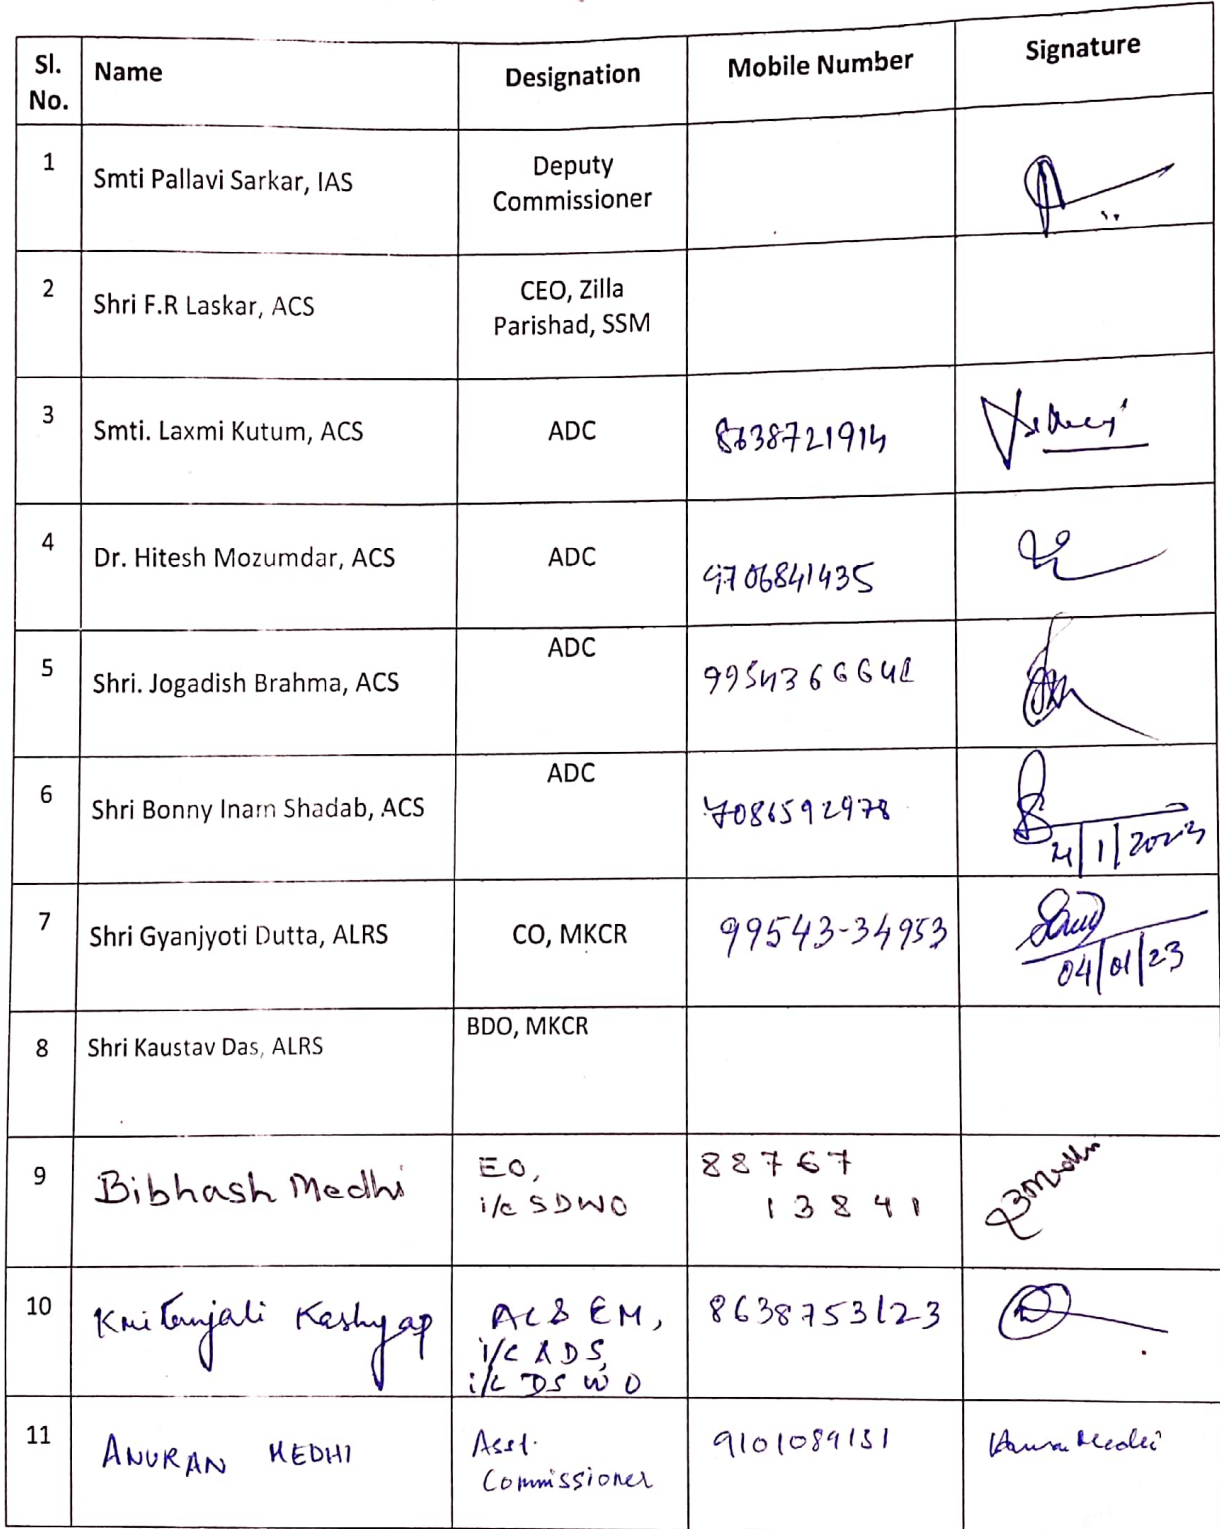 Sl. No. Name Designation Mobile Number Signature
1 Smti Pallavi Sarkar, IAS Deputy Commissioner
2 Shri F.R Laskar, ACS CEO, Zilla Parishad, SSM
3 Smti. Laxmi Kutum, ACS ADC 8638721914
4 Dr. Hitesh Mozumdar, ACS ADC 9706841435
5 Shri. Jogadish Brahma, ACS ADC
6 Shri Bonny Inam Shadab, ACS ADC 7086592978
4/1/2023
7 Shri Gyanjyoti Dutta, ALRS CO, MKCR 99543-34953
04/01/23
8 Shri Kaustav Das, ALRS BDO, MKCR
9 Bibhash Medhi EO, 88767
i/c SDWO 13841
10 Kritanjali Kashyap ACS EM, 8638753123
i/c ADS,
i/c DSWO
11 ANURAN MEDHI Asst. 9101089151
Commissioner